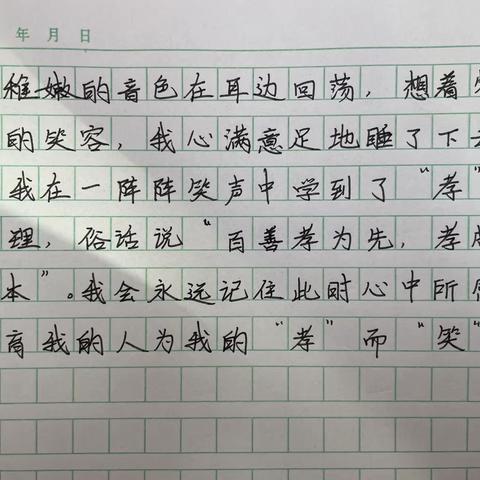 年 月 日
稚嫩的音色在耳边回荡，想着
的笑容，我心满意足地睡了下
我在一阵阵笑声中学到了“孝”
理，俗话说“百善孝为先，孝
本”。我会永远记住此时心中所
我的人为我的“孝”而“笑”